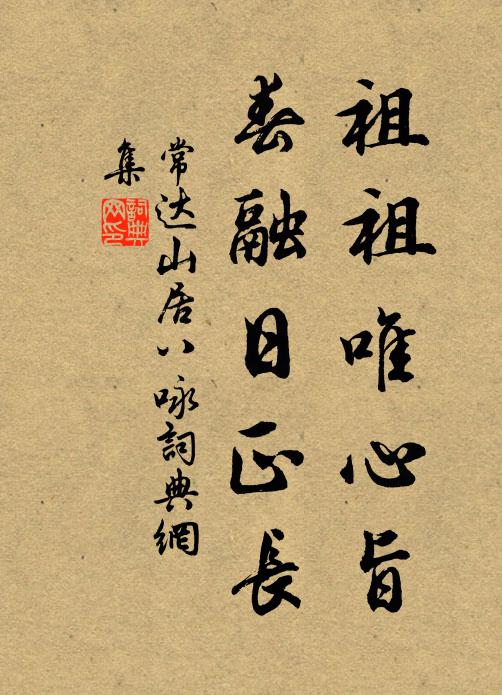 祖祖唯心旨
春融日正長
常达山居八咏詞典網
集
詞典
网印